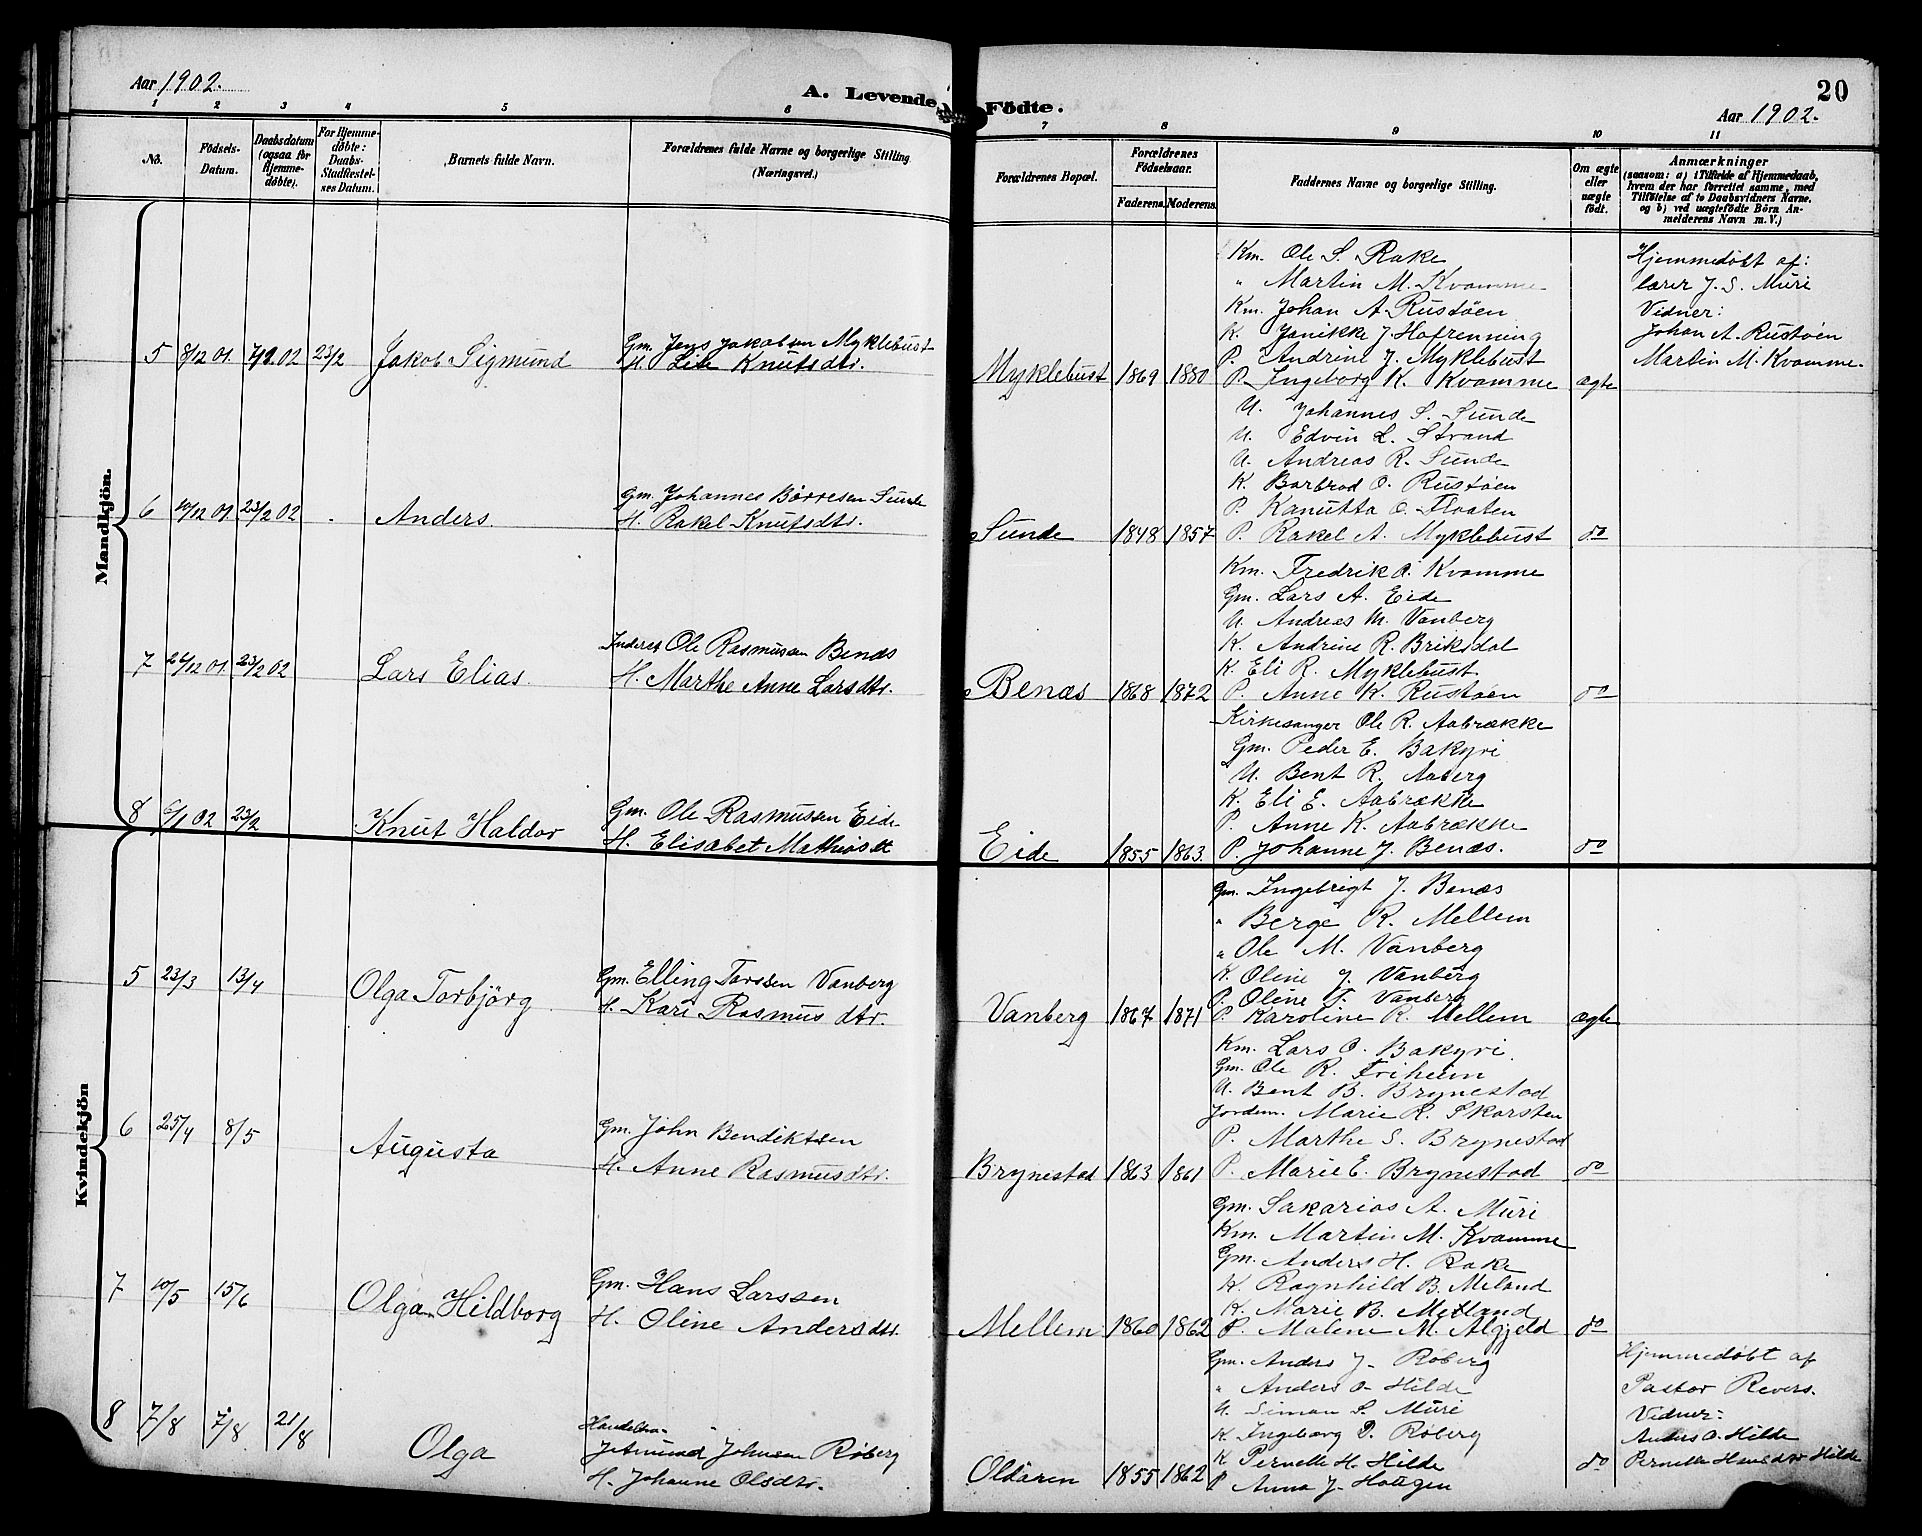 Aar 1902.
A. Levende Födte.
20
Aar 1902.
1 2 3 4 5 6 7 8 9 10 11
No.
Födsels-Datum.
Daabsdatum (ogsaa for Hjemme-döbte).
For Hjemme-döbte: Daabs-Stadfæstel-ses Datum.
Barnets fulde Navn.
Forældrenes fulde Navne og borgerlige Stilling. (Næringsvei.)
Forældrenes Bopæl.
Forældrenes Födselsaar.
Faderens. Moderens.
Faddernes Navne og borgerlige Stilling.
Om ægte eller uægte födt.
Anmærkninger
(saasom: a) i Tilfælde af Hjemmedaab,
hvem der har forrettet samme, med
Tilföielse af to Daabsvidners Navne,
og b) ved uægtefödte Börn An-
melderens Navn m. V.)
Mandkjön.
5 8/12 01. 7/2 02 23/2 Jakob Sigmund
Gm. Jens Jakobsen Myklebust
H. Lise Knutsdtr.
Myklebust 1869 1880
Km. Ole S. Rake
" Martin M. Kvamme
Km. Johan A. Rustöen
K. Janikke J. Hofrenning
P. Andrine J. Myklebust
P. Ingeborg K. Kvamme
ægte
Hjemmedöbt af:
lærer J. S. Muri
Vidner:
Johan A. Rustöen
Martin M. Kvamme.
6 10/12 01. 23/2 02 Anders.
Gm. Johannes Börresen Sunde
H. Rakel Knutsdtr.
Sunde 1848 1857
U. Johannes S. Sunde
U. Edvin L. Strand
U. Andreas R. Sunde
K. Barbrod O. Rustöen
P. Kanutta O. Floaten
P. Rakel A. Myklebust
do
7 26/12 01. 23/2 02 Lars Elias.
Inderst Ole Rasmussen Benæs
H. Marthe Anne Larsdtr.
Benæs 1868 1872
Km. Fredrik A. Kvamme
Gm. Lars A. Eide
U. Andreas M. Vanberg
K. Andrine R. Briksdal
K. Eli R. Myklebust
P. Anne K. Rustöen
do
8 6/1 02 23/2 Knut Haldor
Gm. Ole Rasmussen Eide
H. Elisabet Mathiasdt
Eide 1855 1863.
Kirkesanger Ole R. Aabrække
Gm. Peder E. Bakyri
U. Bent R. Aaberg
K. Eli E. Aabrække
P. Anne K. Aabrække
P. Johanne J. Benæs.
do
Kvindekjön
5 23/3 13/4 Olga Torbjörg
Gm. Elling Tarssen Vanberg
H. Kari Rasmusdtr.
Vanberg 1867 1871
Gm. Ingebrigt J. Benæs
" Berge R. Mellem
" Ole M. Vanberg
K. Oline J. Vanberg
P. Oline T. Vanberg
P. Karoline R. Mellem
ægte
6 25/4 8/5 Augusta
Gm. John Bendiktsen
H. Anne Rasmusdtr.
Brynestad 1863 1861
Km. Lars O. Bakyri.
Gm. Ole R. Friheim
U. Bent B. Brynestad
Jordem. Marie R. Skarsten
P. Marthe S. Brynestad
P. Marie E. Brynestad
do
7 10/5 15/6 Olga Hildborg
Gm. Hans Larssen
H. Oline Andersdtr.
Mellem 1860 1862
Gm. Sakarias A. Muri
Km. Martin M. Kvamme
Gm. Anders H. Rake
K. Ragnhild B. Meland
K. Marie B. Metland
P. Malene M. Algjeld
do
8 7/8 7/8 21/8 Olga
Handelsm.
Jetmund Johnsen Röberg
H. Johanne Olsdtr.
Oldören 1855 1862
Gm. Anders J. Röberg
" Anders O. Hilde
U. Simon S. Muri
K. Ingeborg D. Röberg
K Pernelle H. Hilde
P Anna J. Haugen
do
Hjemmedöbt af
Pastor Revers.
Vidner:
Anders O. Hilde
Pernelle Hansdtr Hilde